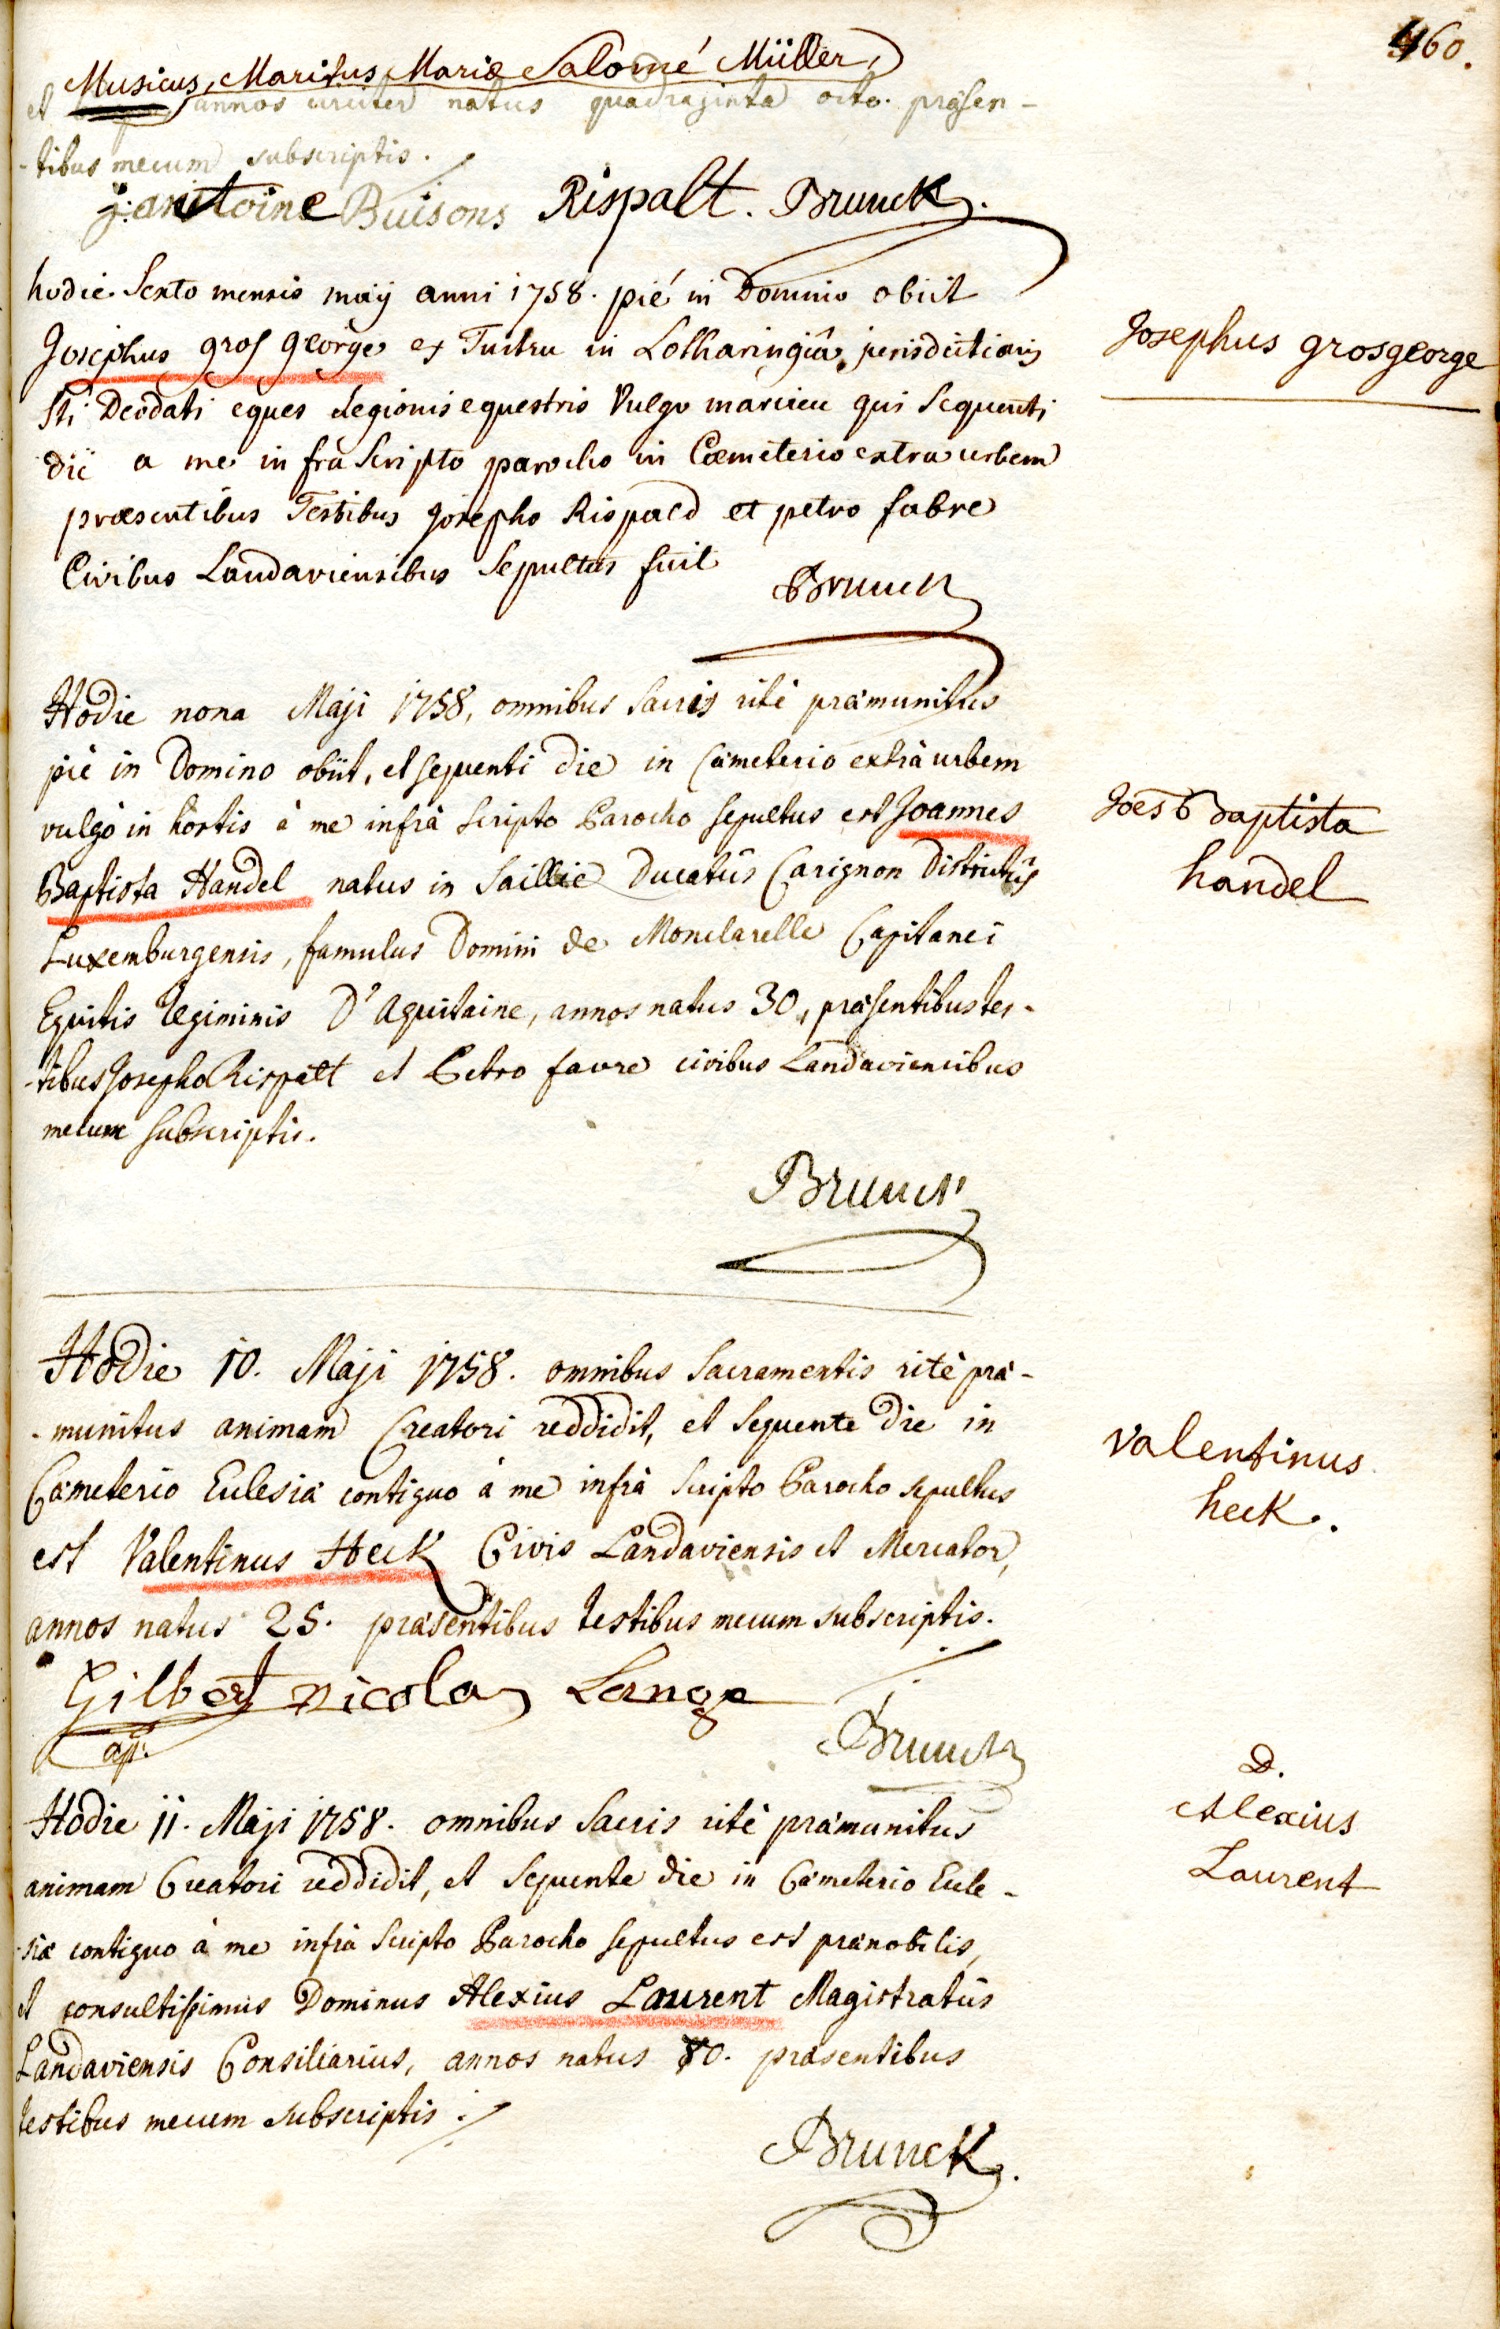 460.
Musicus, Maritus Mariæ Salomé Müller,
et annos circiter natus quadraginta octo. præsen-
-tibus mecum subscriptis.
j: antoine Buisons Rispalt. Brunck.
hodie Sexto mensis maij anni 1758. pié in Domino obiit
Josephus grosgeorge ex in Lotharingiâ, jurisdictionis
Sti Deodati eques Legionis equestris Vulgo marcieu qui Sequenti
die a me infrà Scripto parocho in Cœmeterio extra urbem
præsentibus Testibus Josepho Rispald et petro fabre
Civibus Landaviensibus Sepultus fuit Brunck
Josephus grosgeorge
Hodie nona Maji 1758, omnibus Sacris ritè præmunitus
piè in Domino obiit, et sequenti die in Cæmeterio extrà urbem
vulgò in hortis à me infrà Scripto Parocho sepultus est Joannes
Baptista Handel natus in Saillie Ducatûs Carignon Districtûs
Luxemburgensis, famulus Domini de Monclarelle Capitanei
Equitis Regiminis D'Aquitaine, annos natus 30, præsentibus tes-
-tibus Josepho Rispalt et Petro favre civibus Landaviencibus
mecum subscriptis.
Brunck
Joes Baptista
handel
Hodie 10. Maji 1758. omnibus Sacramentis ritè præ-
-munitus animam Creatori reddidit, et Sequente die in
Cæmeterio Eclesiæ contiguo à me infrà Scripto Parocho sepultus
est Valentinus Heck Civis Landaviensis et Mercator,
annos natus 25. præsentibus testibus mecum subscriptis.
Gilbert nicolas Lange
Brunck
Valentinus
heck.
Hodie 11. Maji 1758. omnibus Sacris ritè præmunitus
animam Creatori reddidit, et Sequente die in Cæmeterio Ecle-
-siæ contiguo à me infrà Scripto Parocho sepultus est prænobilis,
et consultissimus Dominus Alexius Laurent Magistratûs
Landaviensis Consiliarius, annos natus 80. præsentibus
testibus mecum subscriptis.
Brunck.
D.
Alexius
Laurent